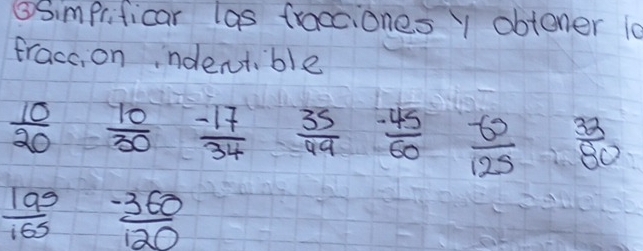 ③ Simprificar las fracciones y obtener lo
fraccion indentible
10/20 10/30 -17/34 35/49 -45/60 -60/125 33/80
195/165 -360/120